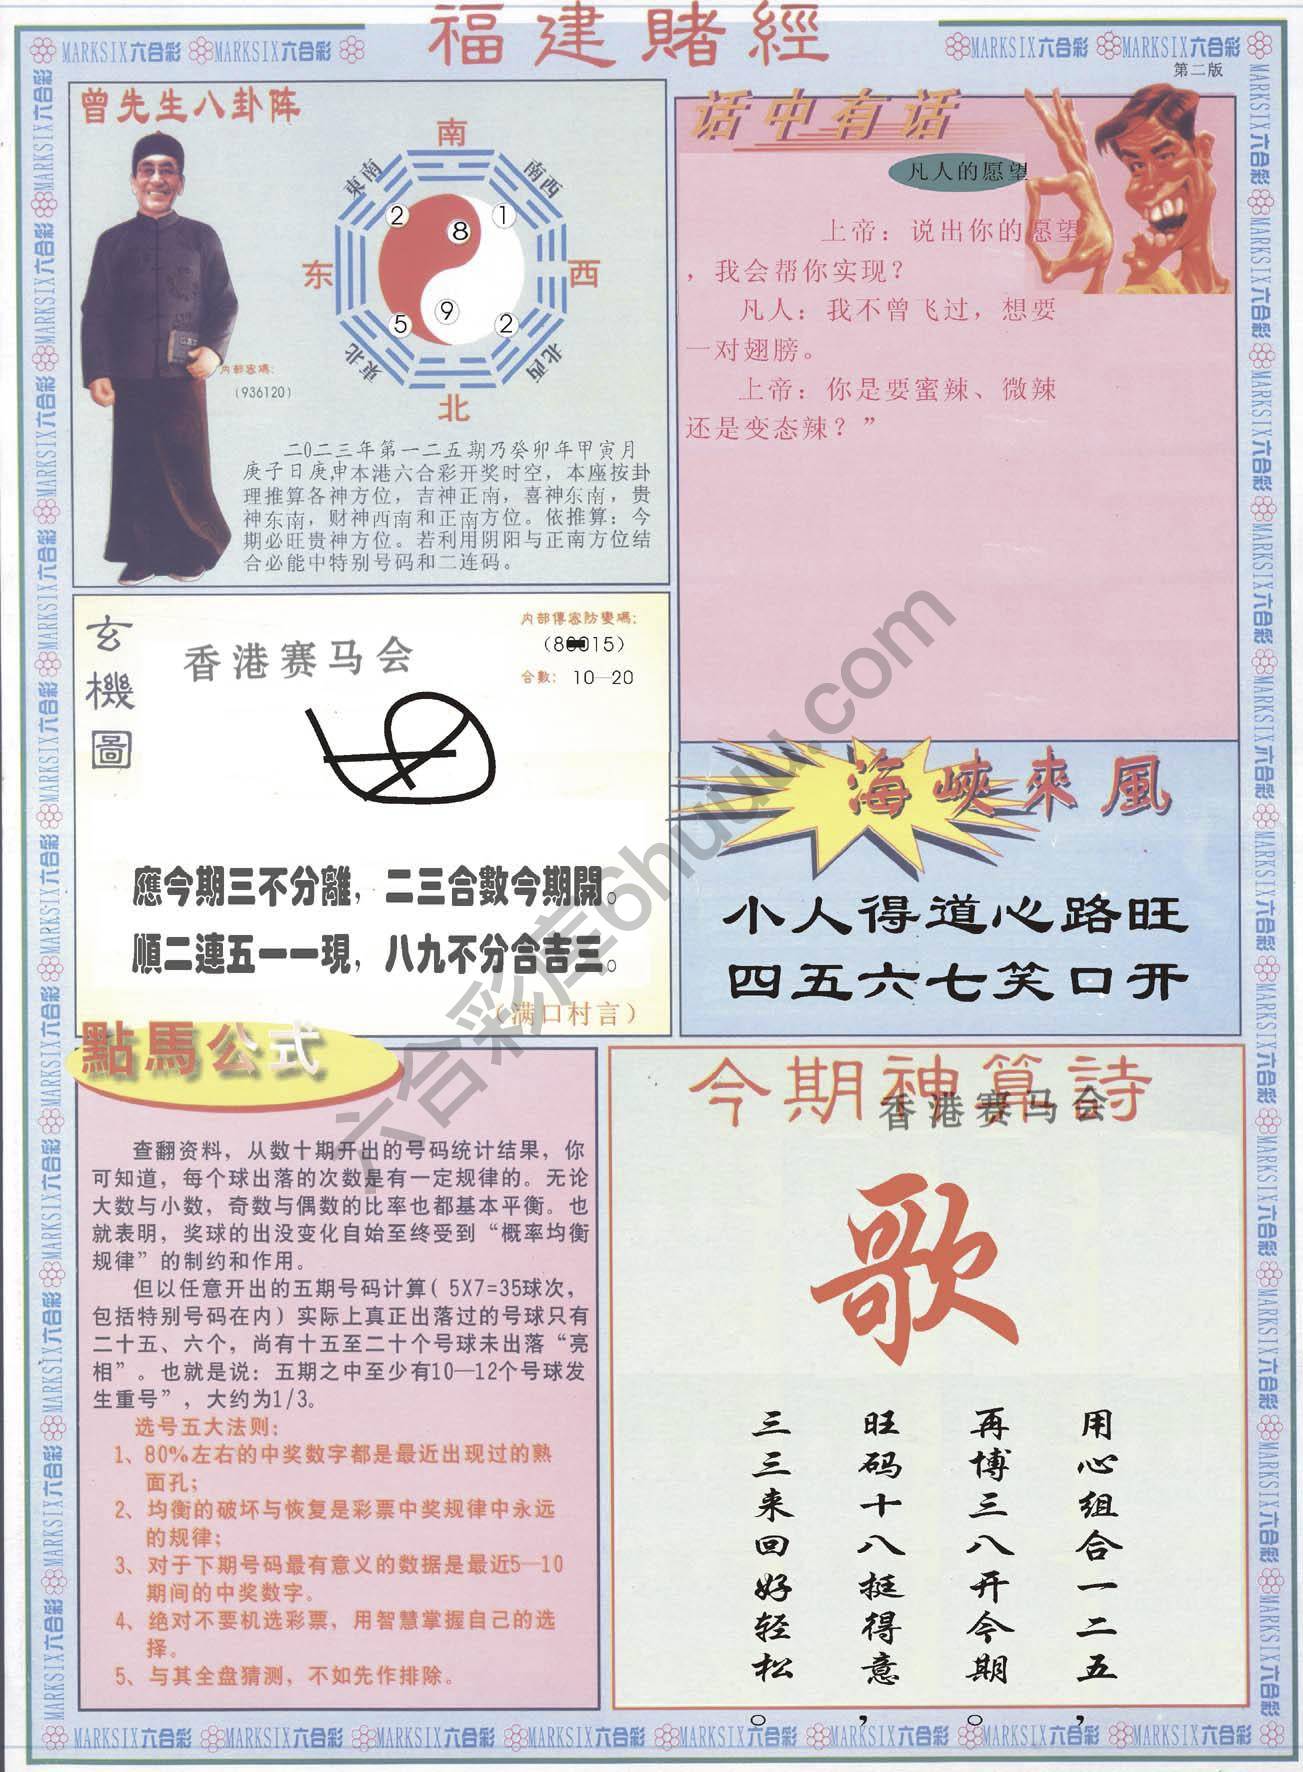 福建賭經
MARKSIX六合彩 MARKSIX六合彩
MARKSIX六合彩 MARKSIX六合彩
第二版
曾先生八卦阵
南
東南
南西
2
8
1
东
西
5
9
2
東北
北西
北
内部密碼：
（936120）
二0二三年第一二五期乃癸卯年甲寅月
庚子日庚申本港六合彩开奖时空，本座按卦
理推算各神方位，吉神正南，喜神东南，贵
神东南，财神西南和正南方位。依推算：今
期必旺贵神方位。若利用阴阳与正南方位结
合必能中特别号码和二连码。
话中有话
凡人的愿望
上帝：说出你的愿望
，我会帮你实现？
凡人：我不曾飞过，想要
一对翅膀。
上帝：你是要蜜辣、微辣
还是变态辣？”
玄機圖
香港赛马会
内部傳密防變碼：
合數： 10—20
應今期三不分離，二三合數今期開。
順二連五一一現，八九不分合吉三。
（满口村言）
海峽來風
小人得道心路旺
四五六七笑口开
點馬公式
查翻资料，从数十期开出的号码统计结果，你
可知道，每个球出落的次数是有一定规律的。无论
大数与小数，奇数与偶数的比率也都基本平衡。也
就表明，奖球的出没变化自始至终受到“概率均衡
规律”的制约和作用。
但以任意开出的五期号码计算（5X7=35球次，
包括特别号码在内）实际上真正出落过的号球只有
二十五、六个，尚有十五至二十个号球未出落“亮
相”。也就是说：五期之中至少有10—12个号球发
生重号”，大约为1/3。
选号五大法则：
1、80%左右的中奖数字都是最近出现过的熟
面孔；
2、均衡的破坏与恢复是彩票中奖规律中永远
的规律；
3、对于下期号码最有意义的数据是最近5—10
期间的中奖数字。
4、绝对不要机选彩票，用智慧掌握自己的选
择。
5、与其全盘猜测，不如先作排除。
今期神算詩
香港赛马会
歌
用心组合一二五，
再博三八开今期。
旺码十八挺得意，
三三来回好轻松。
六合彩库6huuu.com
MARKSIX六合彩 MARKSIX六合彩 MARKSIX六合彩 MARKSIX六合彩 MARKSIX六合彩 MARKSIX六合彩 MARKSIX六合彩 MARKSIX六合彩